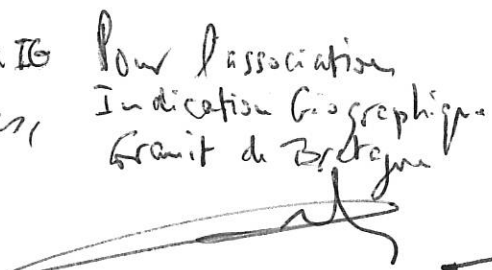 IG Pour l'association
Indication Géographique
Granit de Bretagne